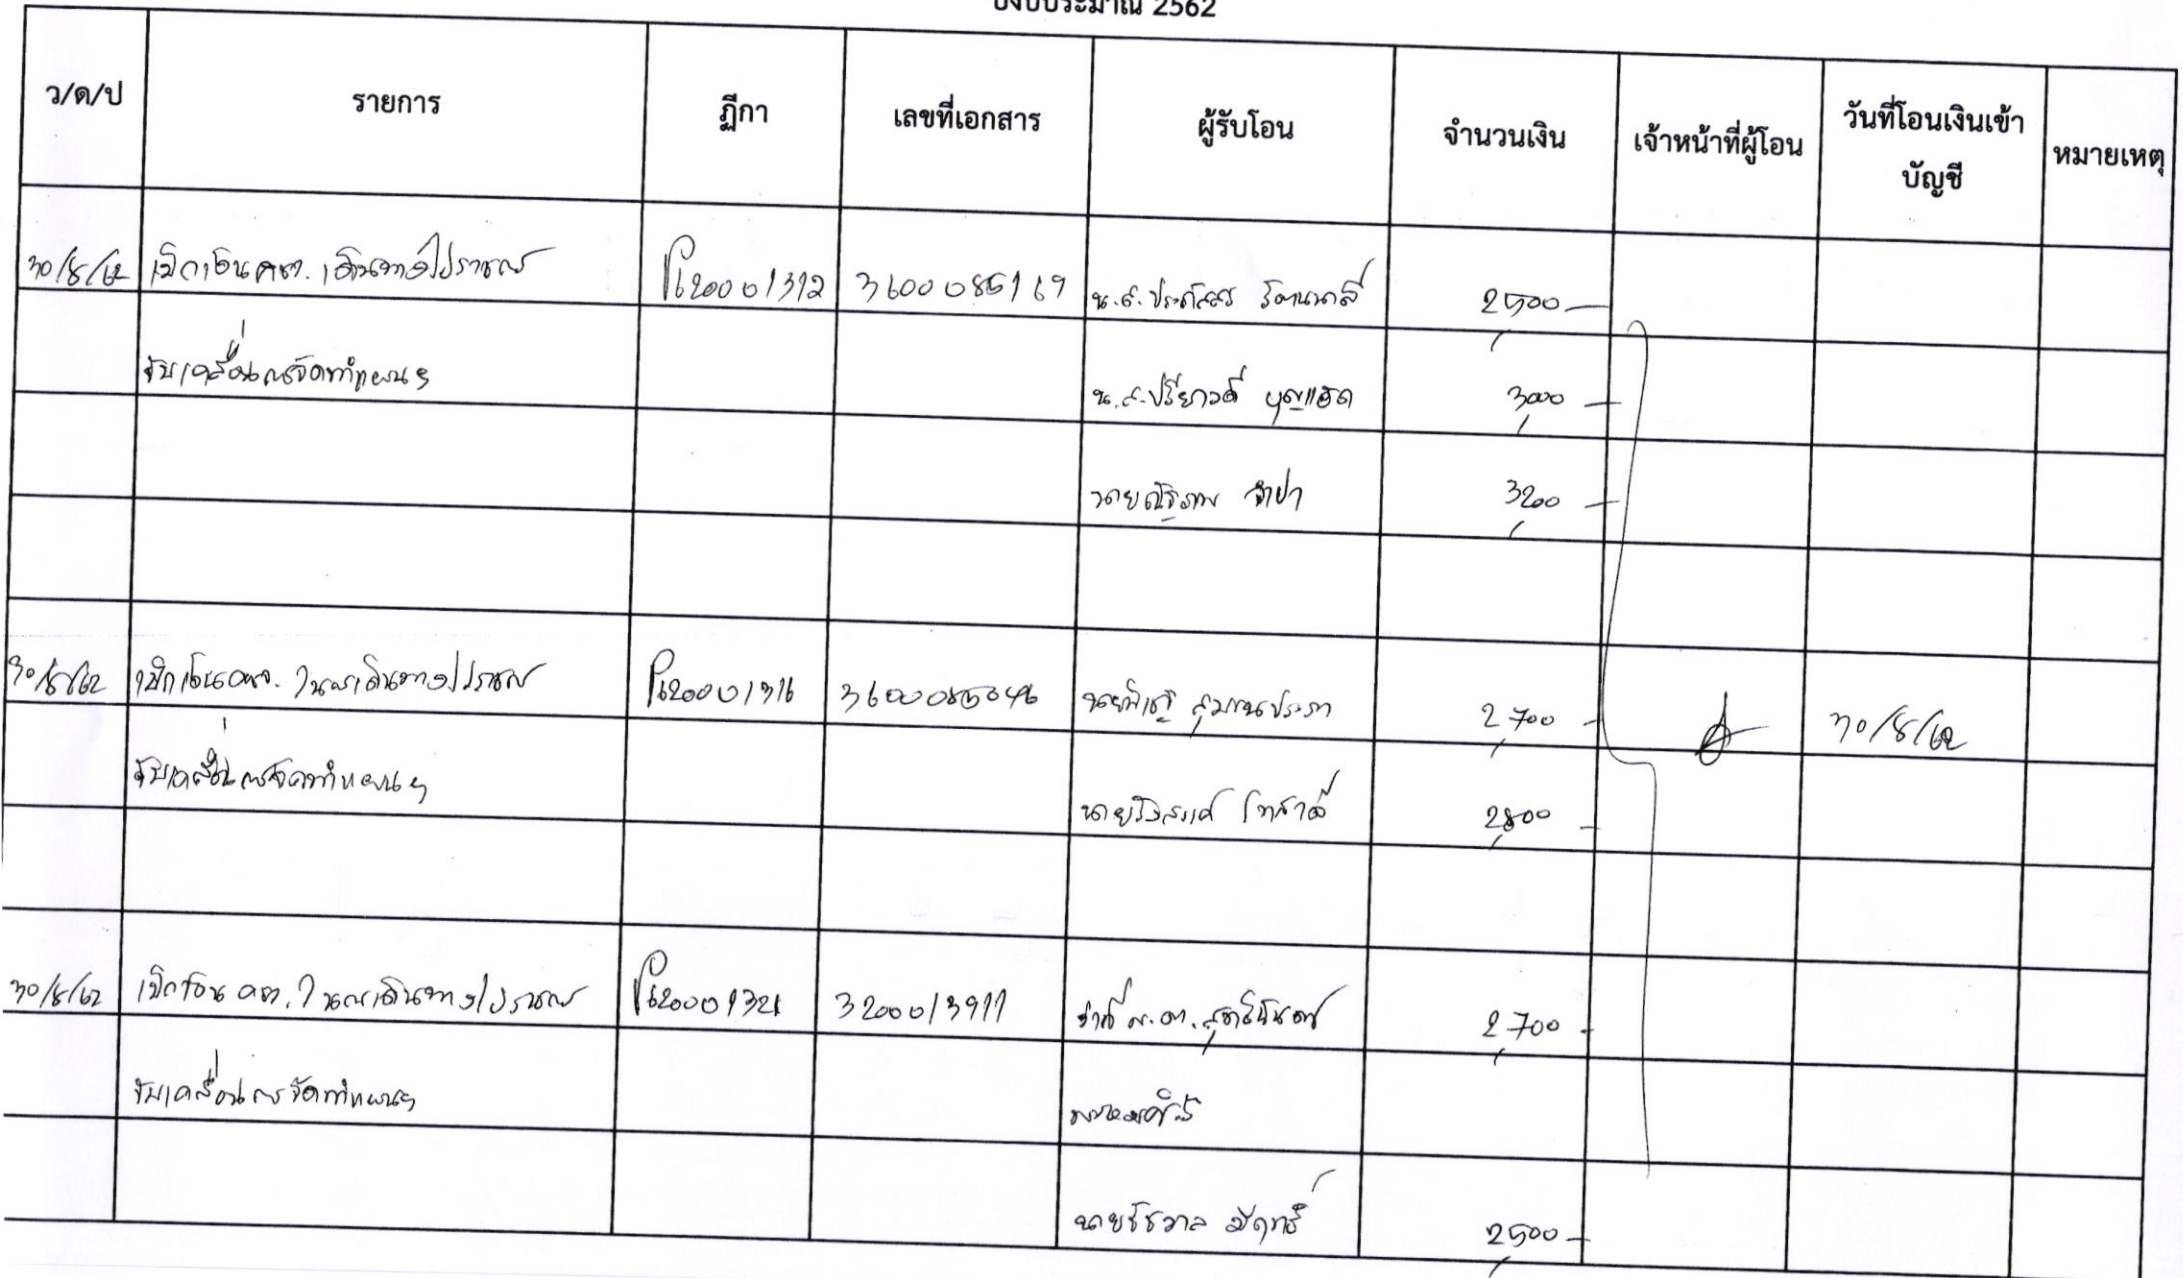 ปีงบประมาณ 2562
ว/ด/ป รายการ ฎีกา เลขที่เอกสาร ผู้รับโอน จำนวนเงิน เจ้าหน้าที่ผู้โอน วันที่โอนเงินเข้าบัญชี หมายเหตุ
30/8/62 เบิกเงิน คชจ. เดินทางไปราชการ P620001312 3600085169 น.ส.ประภัสสร 2,500 -
ขับเคลื่อนการจัดทำแผนฯ น.ส.ปรียาวดี 3,000 -
นาย จำปา 3,200 -
30/8/62 เบิกเงิน คชจ. ในการเดินทางไปราชการ P620001316 2,700 - 30/8/62
ขับเคลื่อนการจัดทำแผนฯ นายรังสรรค์ 2,800 -
30/8/62 เบิกเงิน คชจ. ในการเดินทางไปราชการ 3200013911 ว่าที่ ร.ต. 2,700 -
ขับเคลื่อนการจัดทำแผนฯ
นายธัชวาล มีฤทธิ์ 2,500 -